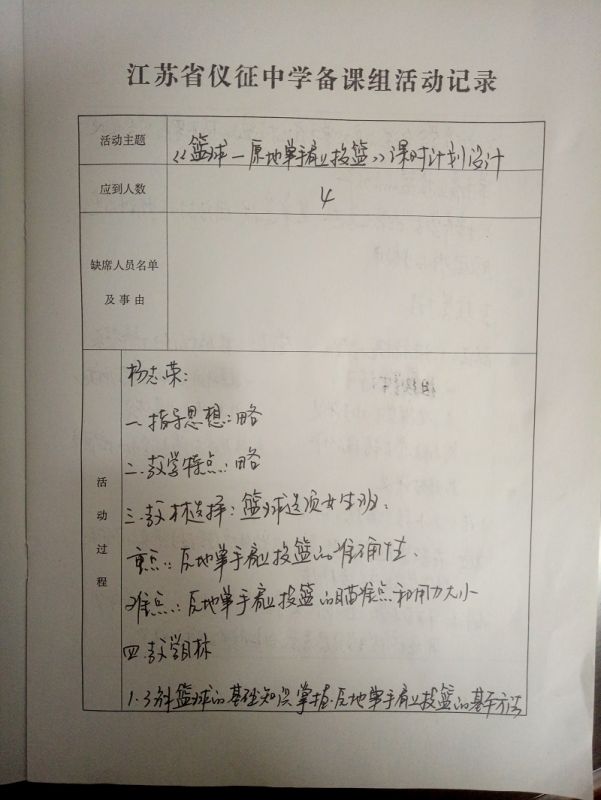 江苏省仪征中学备课组活动记录
活动主题
《篮球—原地单手肩上投篮》课时计划设计
应到人数
4
缺席人员名单
及事由
活动过程
杨志荣:
一.指导思想:略
二.教学特点:略
三.教材选择:篮球选项女生班.
重点:原地单手肩上投篮的准确性.
难点:原地单手肩上投篮的瞄准点和用力大小
四.教学目标
1.了解篮球的基础知识,掌握原地单手肩上投篮的基本方法